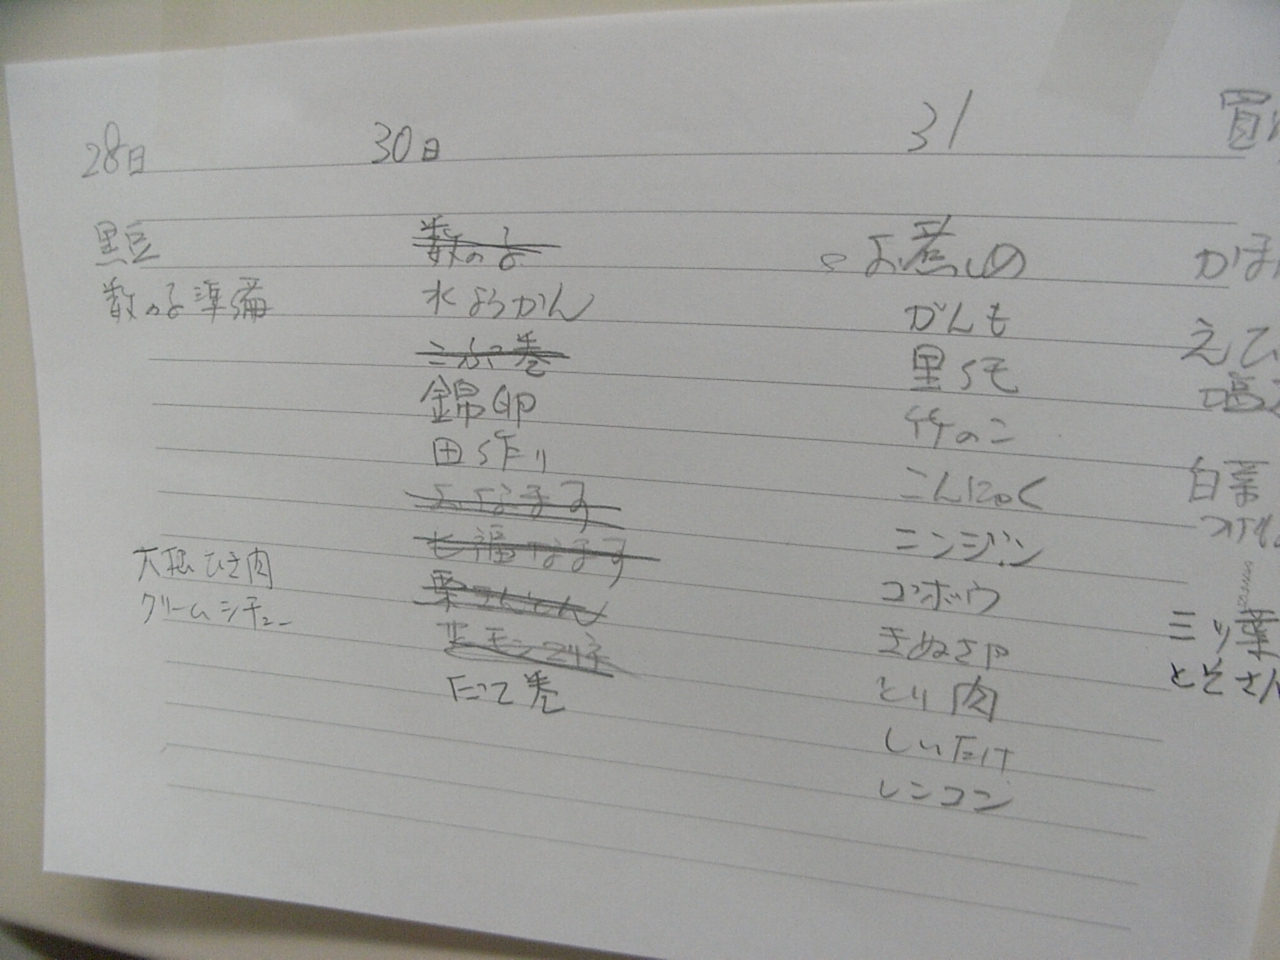 28日
黒豆
数の子準備
大根ひき肉
クリームシチュー
30日
数の子
水ようかん
こぶ巻
錦卵
田作り
七福なます
栗きんとん
だて巻
31
お煮しめ
がんも
里いも
竹のこ
こんにゃく
ニンジン
ゴボウ
きぬさや
とり肉
しいたけ
レンコン
買
かま
えび
白菜
三ッ葉
とそさん